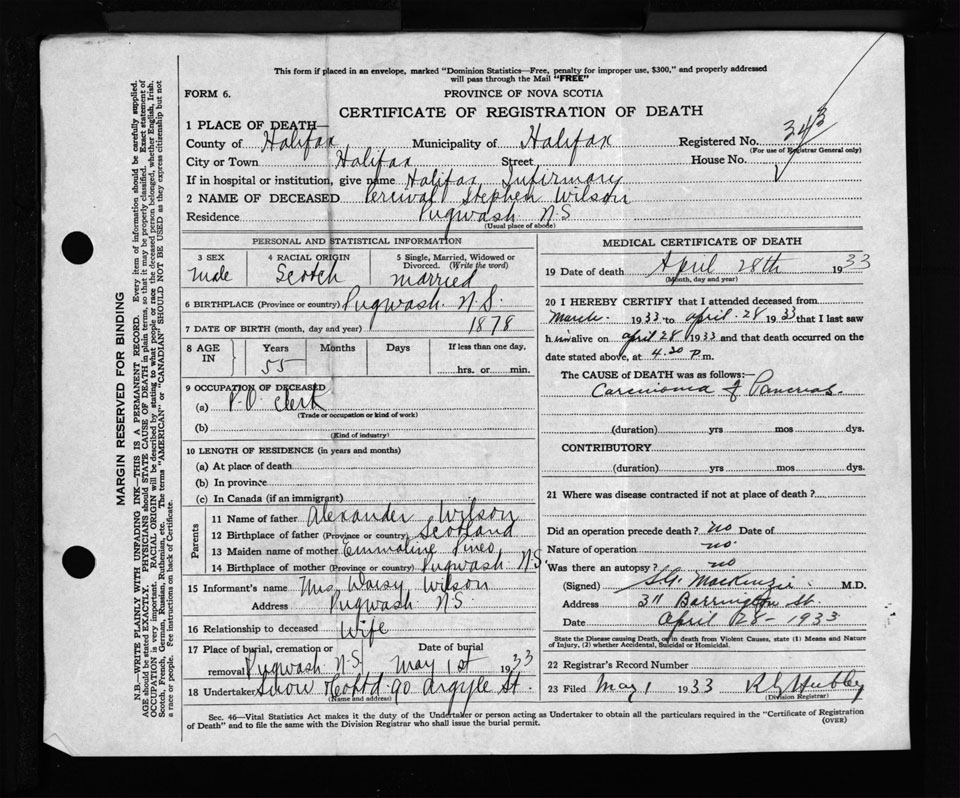 This form if placed in an envelope, marked "Dominion Statistics—Free, penalty for improper use, $300," and properly addressed
will pass through the Mail "FREE"
FORM 6. PROVINCE OF NOVA SCOTIA
CERTIFICATE OF REGISTRATION OF DEATH
1 PLACE OF DEATH—
County of Halifax Municipality of Halifax Registered No. 343
(For use of Registrar General only)
City or Town Halifax Street House No.
If in hospital or institution, give name Halifax Infirmary
2 NAME OF DECEASED Percival Stephen Wilson
Residence Pugwash N.S
(Usual place of abode)
PERSONAL AND STATISTICAL INFORMATION
3 SEX 4 RACIAL ORIGIN 5 Single, Married, Widowed or
Divorced. (Write the word)
Male Scotch Married
6 BIRTHPLACE (Province or country) Pugwash N.S.
7 DATE OF BIRTH (month, day and year) 1878
8 AGE IN Years Months Days If less than one day,
55 hrs. or min.
9 OCCUPATION OF DECEASED
(a) P.O. Clerk
(Trade or occupation or kind of work)
(b)
(Kind of industry)
10 LENGTH OF RESIDENCE (in years and months)
(a) At place of death
(b) In province
(c) In Canada (if an immigrant)
Parents
11 Name of father Alexander Wilson
12 Birthplace of father (Province or country) Scotland
13 Maiden name of mother Emmaline Pineo
14 Birthplace of mother (Province or country) Pugwash N.S.
15 Informant's name Mrs Daisy Wilson
Address Pugwash N.S.
16 Relationship to deceased Wife
17 Place of burial, cremation or Date of burial
removal Pugwash N.S May 1st 1933
18 Undertaker Snow & Co Ltd. 90 Argyle St.
(Name and address)
MEDICAL CERTIFICATE OF DEATH
19 Date of death April 28th 1933
(Month, day and year)
20 I HEREBY CERTIFY that I attended deceased from
March 1933 to April 28 1933 that I last saw
him alive on april 28 1933 and that death occurred on the
date stated above, at 4.30 P.m.
The CAUSE OF DEATH was as follows:—
Carcinoma of Pancreas.
(duration) yrs mos dys.
CONTRIBUTORY
(duration) yrs. mos. dys.
21 Where was disease contracted if not at place of death?
Did an operation precede death? no Date of
Nature of operation no.
Was there an autopsy? no
(Signed) MacKenzie M.D.
Address 311 Barrington St.
Date April 28-1933
State the Disease causing Death, or in death from Violent Causes, state (1) Means and Nature
of Injury, (2) whether Accidental, Suicidal or Homicidal.
22 Registrar's Record Number
23 Filed May 1 1933
(Division Registrar)
Sec. 46—Vital Statistics Act makes it the duty of the Undertaker or person acting as Undertaker to obtain all the particulars required in the "Certificate of Registration
of Death" and to file the same with the Division Registrar who shall issue the burial permit. (OVER)
MARGIN RESERVED FOR BINDING
N.B.—WRITE PLAINLY WITH UNFADING INK—THIS IS A PERMANENT RECORD. Every item of information should be carefully supplied.
AGE should be stated EXACTLY. PHYSICIANS should STATE CAUSE OF DEATH in plain terms, so that it may be properly classified. Exact statement of
OCCUPATION is very important. RACIAL ORIGIN will be described by stating to what people or race the deceased person belonged, whether English, Irish,
Scotch, French, German, Russian, Ruthenian, etc. The terms "AMERICAN" or "CANADIAN" SHOULD NOT BE USED as they express citizenship but not
a race or people. See instructions on back of Certificate.